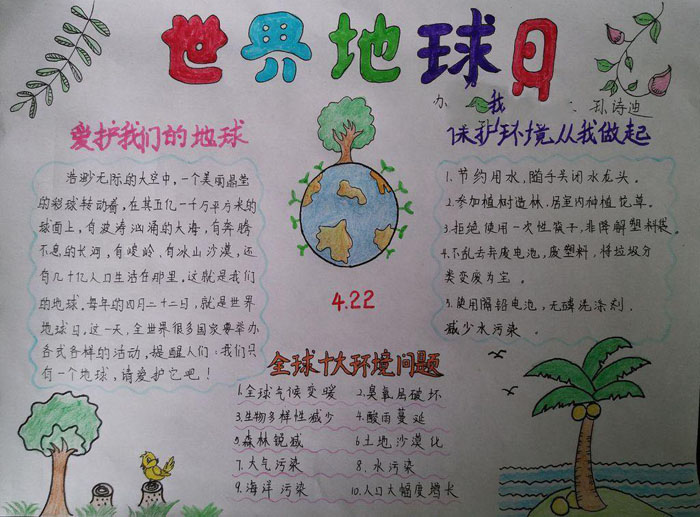 世界地球日
办 我 : 孙诗迪
爱护我们的地球
浩渺无际的太空中,一个美丽晶莹
的彩球转动着,在其五亿一千万平方米的
球面上,有波涛汹涌的大海,有奔腾
不息的长河,有峻岭、有冰山沙漠,还
有几十亿人口生活在那里,这就是我们
的地球,每年的四月二十二日,就是世界
地球日,这一天,全世界很多国家要举办
各式各样的活动,提醒人们:我们只
有一个地球,请爱护它吧!
4.22
保护环境从我做起
1.节约用水,随手关闭水龙头。
2.参加植树造林,居室内种植花草。
3.拒绝使用一次性筷子,非降解塑料袋
4.不乱去弃废电池,废塑料,将垃圾分
类变废为宝。
5.使用隔铅电池,无磷洗涤剂.
减少水污染。
全球十大环境问题
1.全球气候变暖 2.臭氧层破坏
3.生物多样性减少 4.酸雨蔓延
5.森林锐减 6.土地沙漠化
7.大气污染 8.水污染
9.海洋污染 10.人口大幅度增长